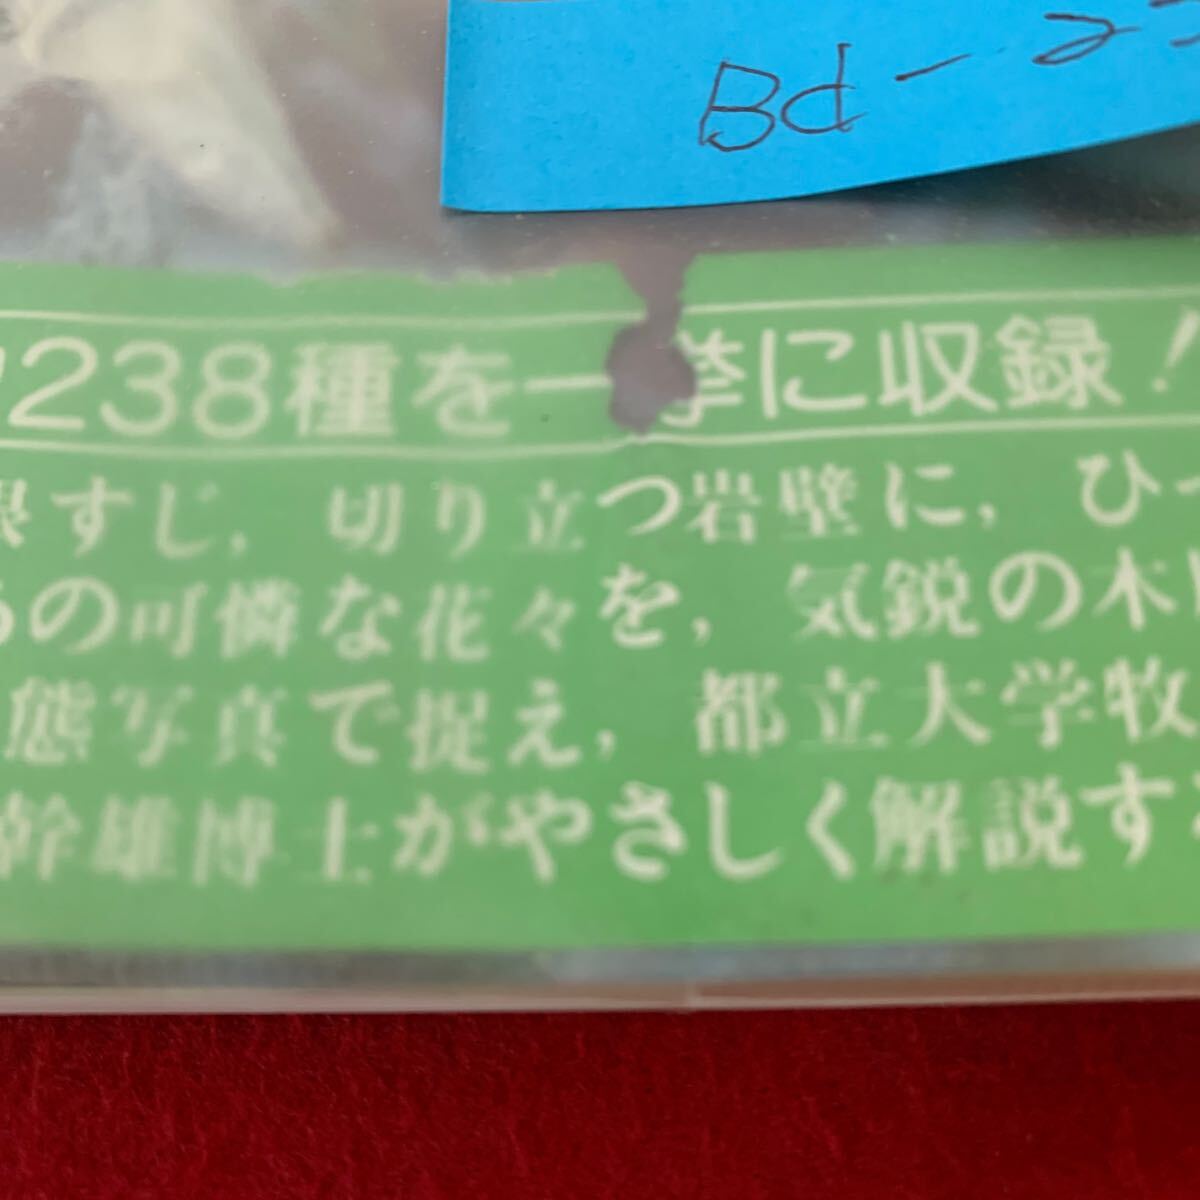 Bd-23
238種を一挙に収録!
根すじ, 切り立つ岩壁に, ひ
の可憐な花々を, 気鋭の木
態写真で捉え, 都立大学牧
幹雄博士がやさしく解説す